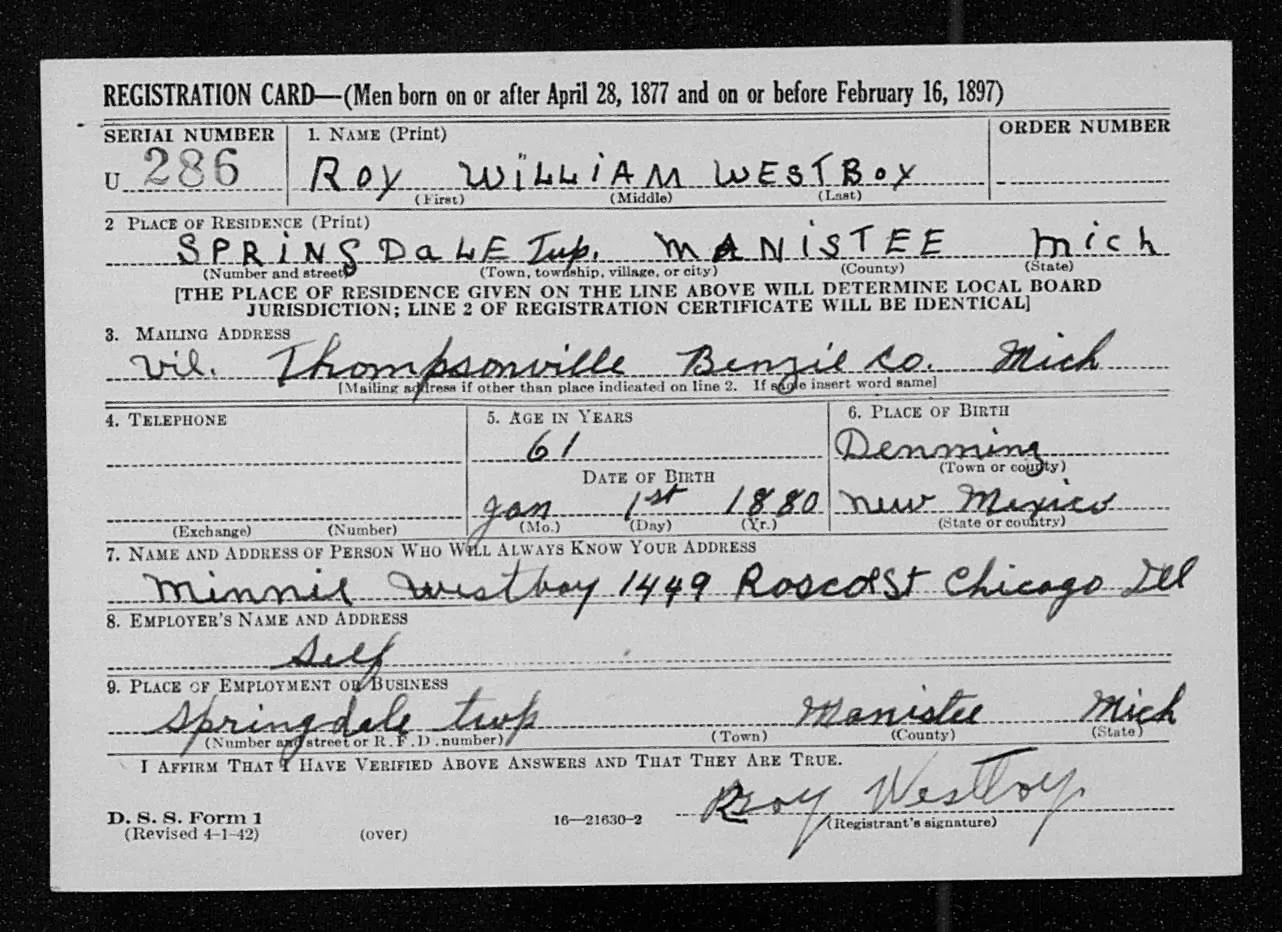 REGISTRATION CARD—(Men born on or after April 28, 1877 and on or before February 16, 1897)
SERIAL NUMBER 1. NAME (Print) ORDER NUMBER
U 286 ROY WILLIAM WESTBOY
(First) (Middle) (Last)
2 PLACE OF RESIDENCE (Print)
SPRINGDALE Twp. MANISTEE Mich
(Number and street) (Town, township, village, or city) (County) (State)
[THE PLACE OF RESIDENCE GIVEN ON THE LINE ABOVE WILL DETERMINE LOCAL BOARD
JURISDICTION; LINE 2 OF REGISTRATION CERTIFICATE WILL BE IDENTICAL]
3. MAILING ADDRESS
Vil. Thompsonville Benzie Co. Mich
[Mailing address if other than place indicated on line 2. If same insert word same]
4. TELEPHONE 5. AGE IN YEARS 6. PLACE OF BIRTH
61 Denming
DATE OF BIRTH (Town or county)
Jan 1st 1880 New Mexico
(Exchange) (Number) (Mo.) (Day) (Yr.) (State or country)
7. NAME AND ADDRESS OF PERSON WHO WILL ALWAYS KNOW YOUR ADDRESS
Minnie Westboy 1449 Roscoe St Chicago Ill
8. EMPLOYER'S NAME AND ADDRESS
Self
9. PLACE OF EMPLOYMENT OR BUSINESS
Springdale twp Manistee Mich
(Number and street or R. F. D. number) (Town) (County) (State)
I AFFIRM THAT I HAVE VERIFIED ABOVE ANSWERS AND THAT THEY ARE TRUE.
Roy Westboy
D. S. S. Form 1 16—21630-2 (Registrant's signature)
(Revised 4-1-42) (over)